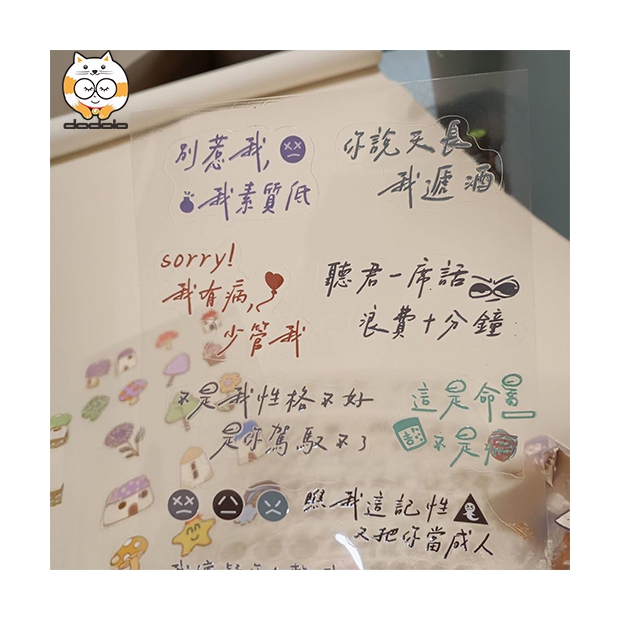 dodolo
別惹我,
我素質低
你說天長
我遞酒
sorry!
我有病,
少管我
聽君一席話
浪費十分鐘
不是我性格不好
是你駕馭不了
這是命
不是病
瞧我這記性
又把你當成人